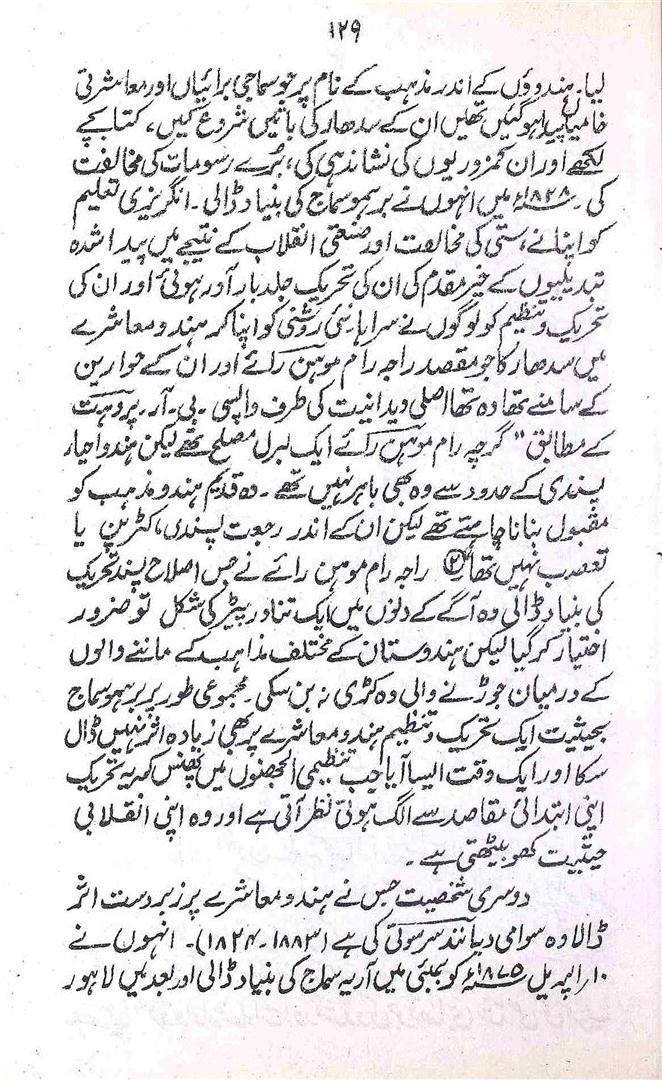 ۱۲۹
لیا۔ ہندوؤں کے اندر مذہب کے نام پر جو سماجی برائیاں اور معاشرتی
خامیاں پیدا ہوگئیں تھیں ان کے سدھار کی باتیں شروع کیں، کتابچے
لکھے اور ان کمزوریوں کی نشاندہی کی، بُرے رسومات کی مخالفت
کی۔ ۱۸۲۸ء میں انہوں نے برہمو سماج کی بنیاد ڈالی۔ انگریزی تعلیم
کو اپنانے، ستی کی مخالفت اور صنعتی انقلاب کے نتیجے میں پیدا شدہ
تبدیلیوں کے خیر مقدم کی ان کی تحریک جلد بار آور ہوئی اور ان کی
تحریک و تنظیم کو لوگوں نے سراہا نئی روشنی کو اپنا کر ہندو معاشرے
میں سدھار کا جو مقصد راجہ رام موہن رائے اور ان کے حوارین
کے سامنے تھا وہ تھا اصلی ویدانیت کی طرف واپسی۔ بی۔ آر۔ پروہت
کے مطابق "گرچہ رام موہن رائے ایک لبرل مصلح تھے لیکن ہندو احیار
پسندی کے حدود سے وہ بھی باہر نہیں تھے۔ وہ قدیم ہندو مذہب کو
مقبول بنانا چاہتے تھے لیکن ان کے اندر رجعت پسندی، کٹرپن یا
تعصب نہیں تھا" راجہ رام موہن رائے نے جس اصلاح پسند تحریک
کی بنیاد ڈالی وہ آگے کے دلوں میں ایک تناور پیڑ کی شکل تو ضرور
اختیار کر گیا لیکن ہندوستان کے مختلف مذاہب کے ماننے والوں
کے درمیان جوڑنے والی وہ کڑی نہ بن سکی۔ مجموعی طور پر برہمو سماج
بحیثیت ایک تحریک و تنظیم ہندو معاشرے پر بھی زیادہ اثر نہیں ڈال
سکا اور ایک وقت ایسا آیا جب تنظیمی الجھنوں میں پھنس کر یہ تحریک
اپنی ابتدائی مقاصد سے الگ ہوتی نظر آتی ہے اور وہ اپنی انقلابی
حیثیت کھو بیٹھتی ہے۔
دوسری شخصیت جس نے ہندو معاشرے پر زبردست اثر
ڈالا وہ سوامی دیانند سرسوتی کی ہے (۱۸۸۳-۱۸۲۴)۔ انہوں نے
۱۰ اپریل ۱۸۷۵ء کو بمبئی میں آریہ سماج کی بنیاد ڈالی اور بعد میں لاہور